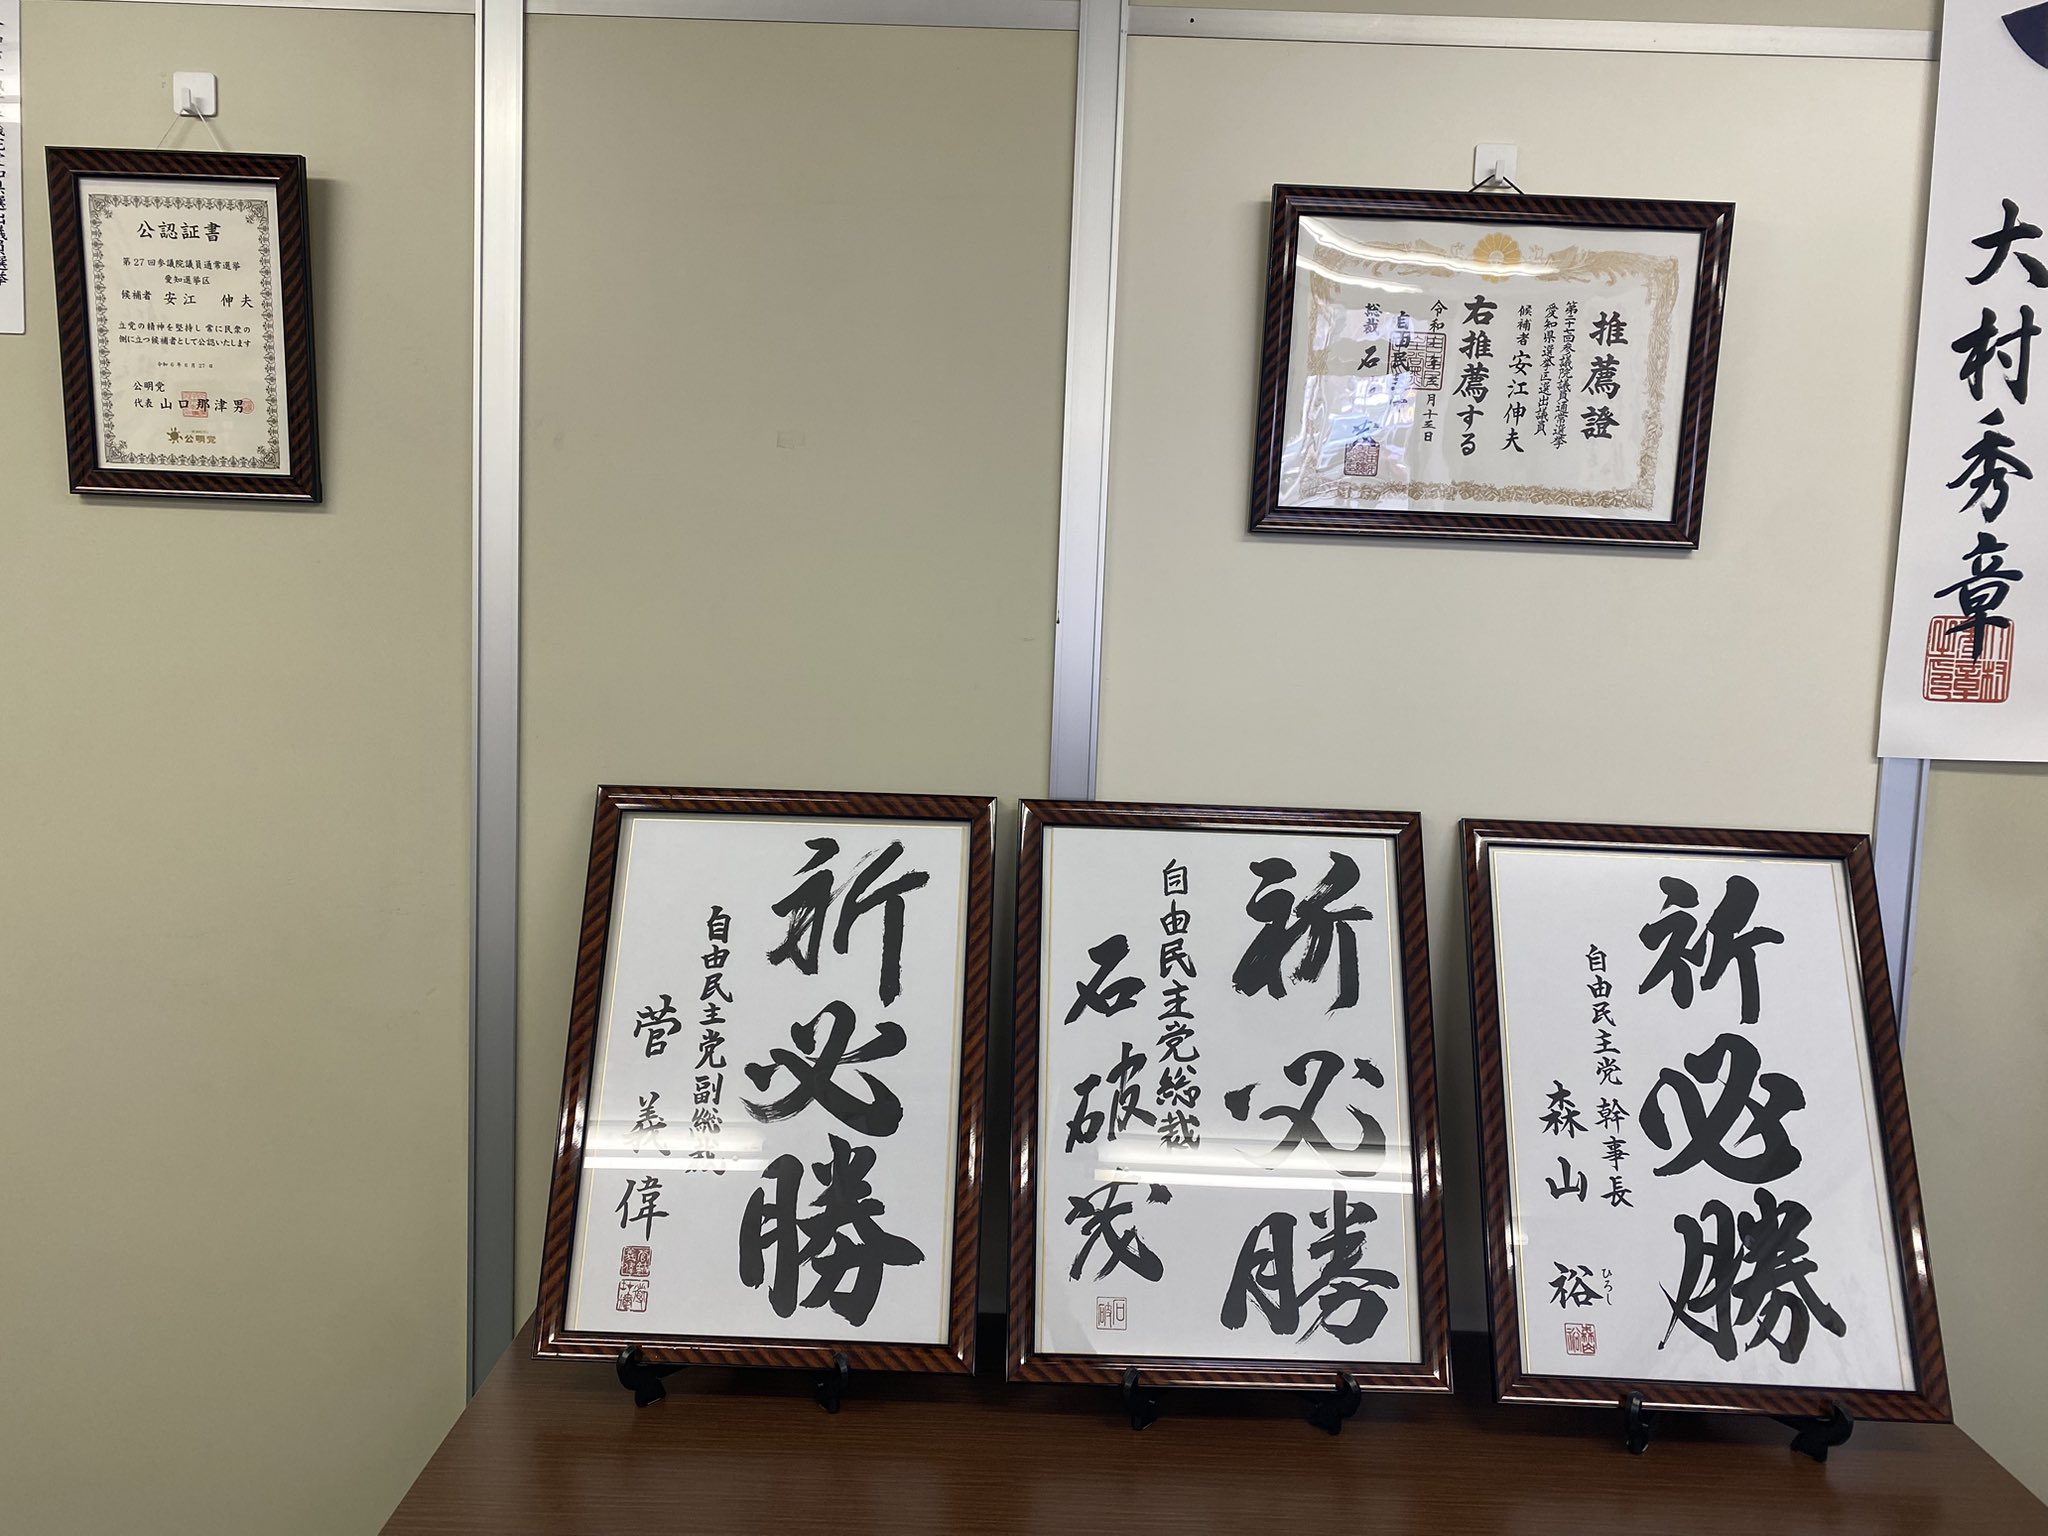 公認証書
第27回参議院議員通常選挙
愛知選挙区
候補者 安江 伸夫
立党の精神を堅持し常に民衆の
側に立つ候補者として公認いたします
令和6年6月27日
公明党
代表 山口那津男
公明党
推薦證
第二十七回参議院議員通常選挙
愛知県選挙区選出議員
候補者 安江伸夫
右推薦する
令和七年 月十三日
自由民主
総裁 石
大村秀章
祈必勝
自由民主党副総裁
菅義偉
祈必勝
自由民主党総裁
石破茂
石破
祈必勝
自由民主党 幹事長
森山 裕
ひろし
森山裕